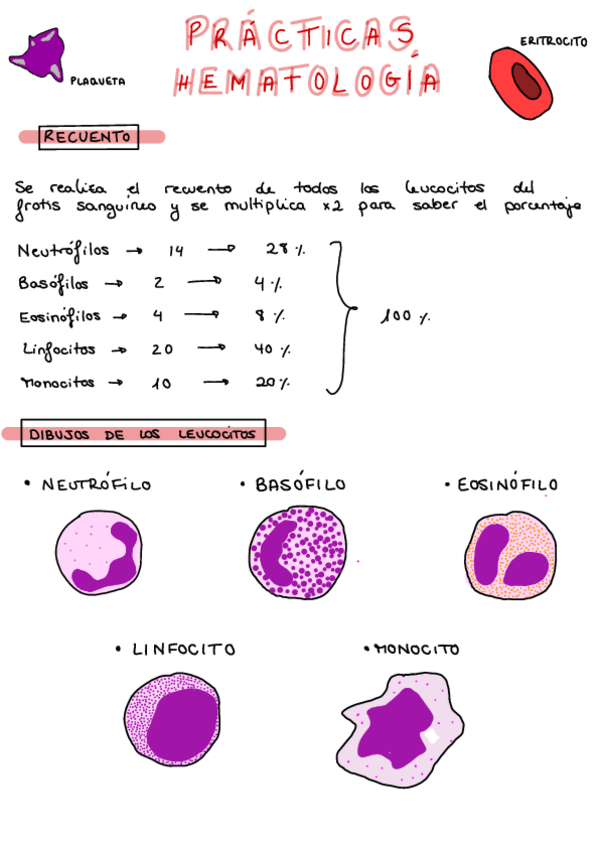 PRÁCTICAS
HEMATOLOGÍA
PLAQUETA
ERITROCITO
RECUENTO
Se realiza el recuento de todos los leucocitos del
frotis sanguíneo y se multiplica x2 para saber el porcentaje
Neutrófilos → 14 → 28 %
Basófilos → 2 → 4 %
Eosinófilos → 4 → 8 %
Linfocitos → 20 → 40 %
Monocitos → 10 → 20 %
100 %
DIBUJOS DE LOS LEUCOCITOS
• NEUTRÓFILO • BASÓFILO • EOSINÓFILO
• LINFOCITO • MONOCITO